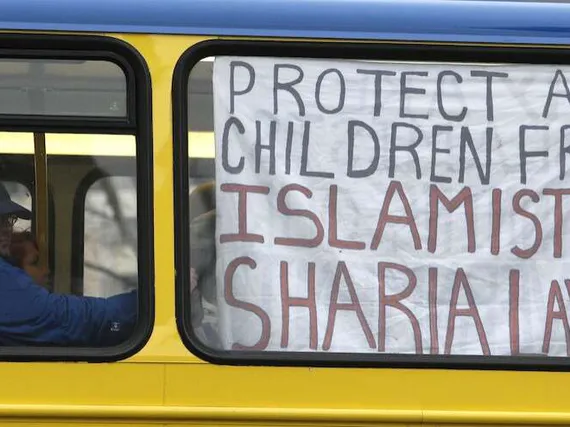 PROTECT A
CHILDREN FR
ISLAMIST
SHARIA LA